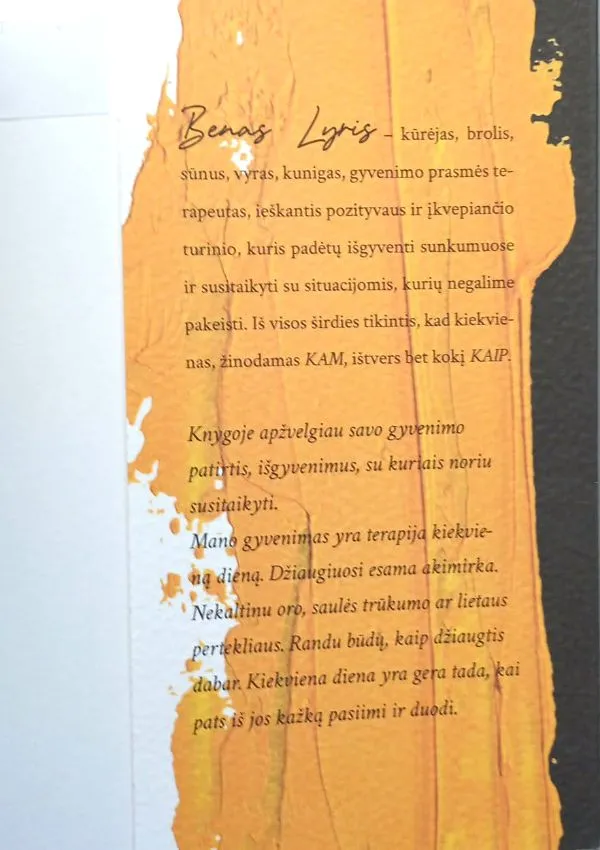 Benas Lyris – kūrėjas, brolis,
sūnus, vyras, kunigas, gyvenimo prasmės te-
rapeutas, ieškantis pozityvaus ir įkvepiančio
turinio, kuris padėtų išgyventi sunkumuose
ir susitaikyti su situacijomis, kurių negalime
pakeisti. Iš visos širdies tikintis, kad kiekvie-
nas, žinodamas KAM, ištvers bet kokį KAIP.
Knygoje apžvelgiau savo gyvenimo
patirtis, išgyvenimus, su kuriais noriu
susitaikyti.
Mano gyvenimas yra terapija kiekvie-
ną dieną. Džiaugiuosi esama akimirka.
Nekaltinu oro, saulės trūkumo ar lietaus
pertekliaus. Randu būdų, kaip džiaugtis
dabar. Kiekviena diena yra gera tada, kai
pats iš jos kažką pasiimi ir duodi.